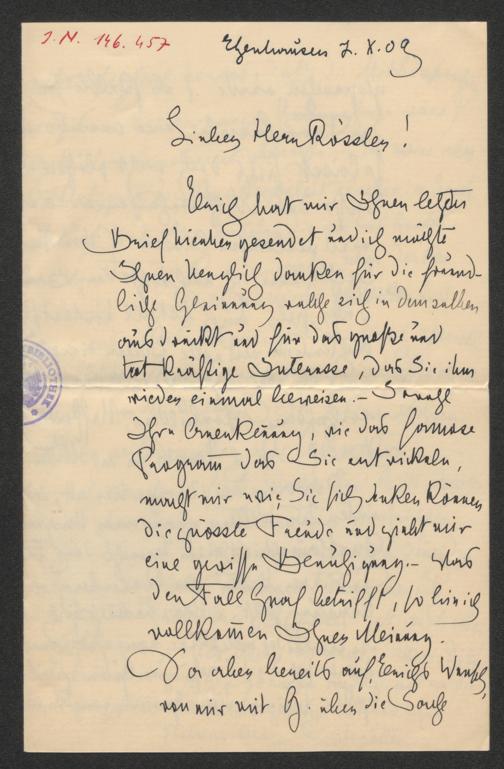 J.N. 146.457
Ebenhausen 7. X. 09
Lieber Herr Rössler!
Erich hat mir Ihren letzten
Brief hierher gesendet und ich möchte
Ihnen herzlich danken für die freund-
liche Gesinnung welche sich in demselben
ausdrückt und für das große und
tatkräftige Interesse, das Sie ihm
wieder einmal beweisen. – Sowohl
Ihre Anerkennung, wie das famose
Programm das Sie entwickeln,
macht mir wie Sie sich denken können
die grösste Freude und giebt mir
eine gewisse Beruhigung. – Was
den Fall Graf betrifft, so bin ich
vollkommen Ihrer Meinung.
Da aber bereits auf Erichs Wunsch,
von mir mit G. über die Sache
BIBLIOTHEK